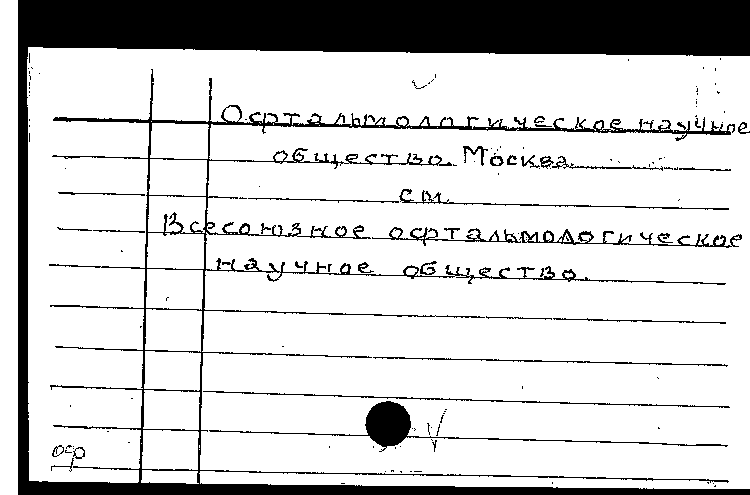 Офтальмологическое научное
общество. Москва.
см.
Всесоюзное офтальмологическое
научное общество.
оф